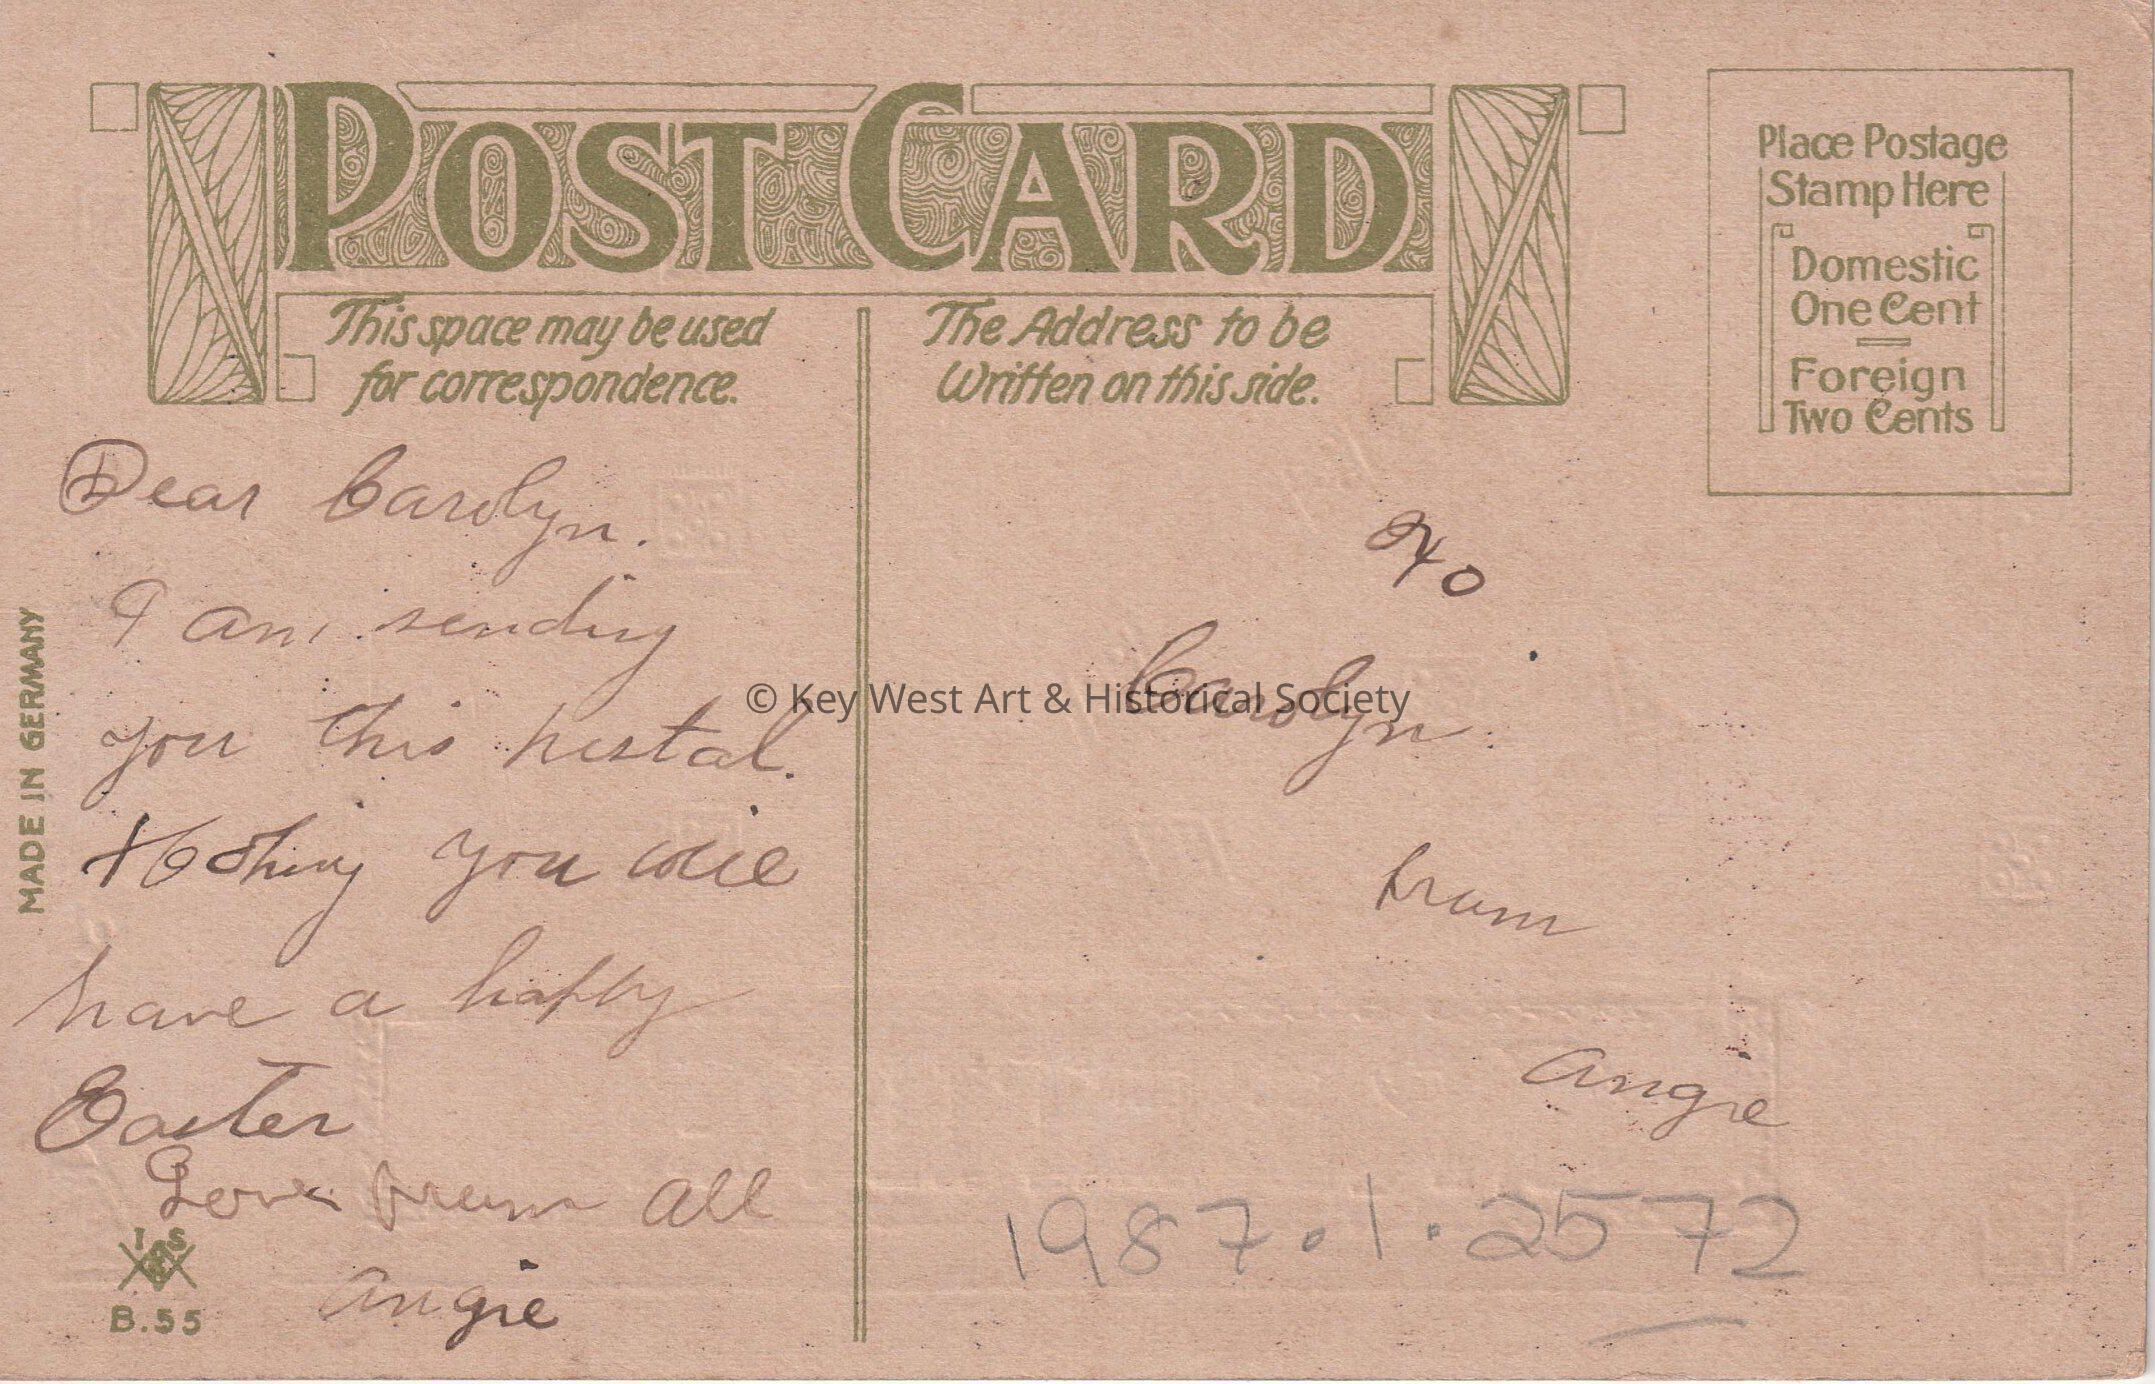 POST CARD
This space may be used
for correspondence.
The Address to be
Written on this side.
Place Postage
Stamp Here
Domestic
One Cent
Foreign
Two Cents
MADE IN GERMANY
Dear Carolyn.
I am sending
you this postal.
Hoping you will
have a happy
Easter
Love from All
Angie
I S
B.55
to
Carolyn.
from
Angie
1987.1.2572
© Key West Art & Historical Society